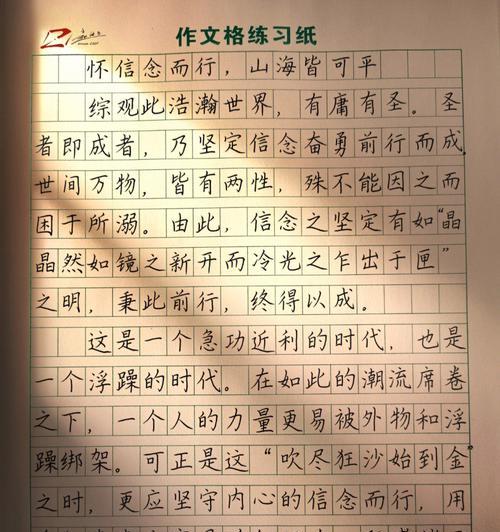 作文格练习纸
怀信念而行，山海皆可平
综观此浩瀚世界，有庸有圣。圣
者即成者，乃坚定信念奋勇前行而成。
世间万物，皆有两性，殊不能因之而
困于所溺。由此，信念之坚定有如“晶
晶然如镜之新开而冷光之乍出于匣”
之明，秉此前行，终得以成。
这是一个急功近利的时代，也是
一个浮躁的时代。在如此的潮流席卷
之下，一个人的力量更易被外物和浮
躁绑架。可正是这“吹尽狂沙始到金”
之时，更应坚守内心的信念而行，用